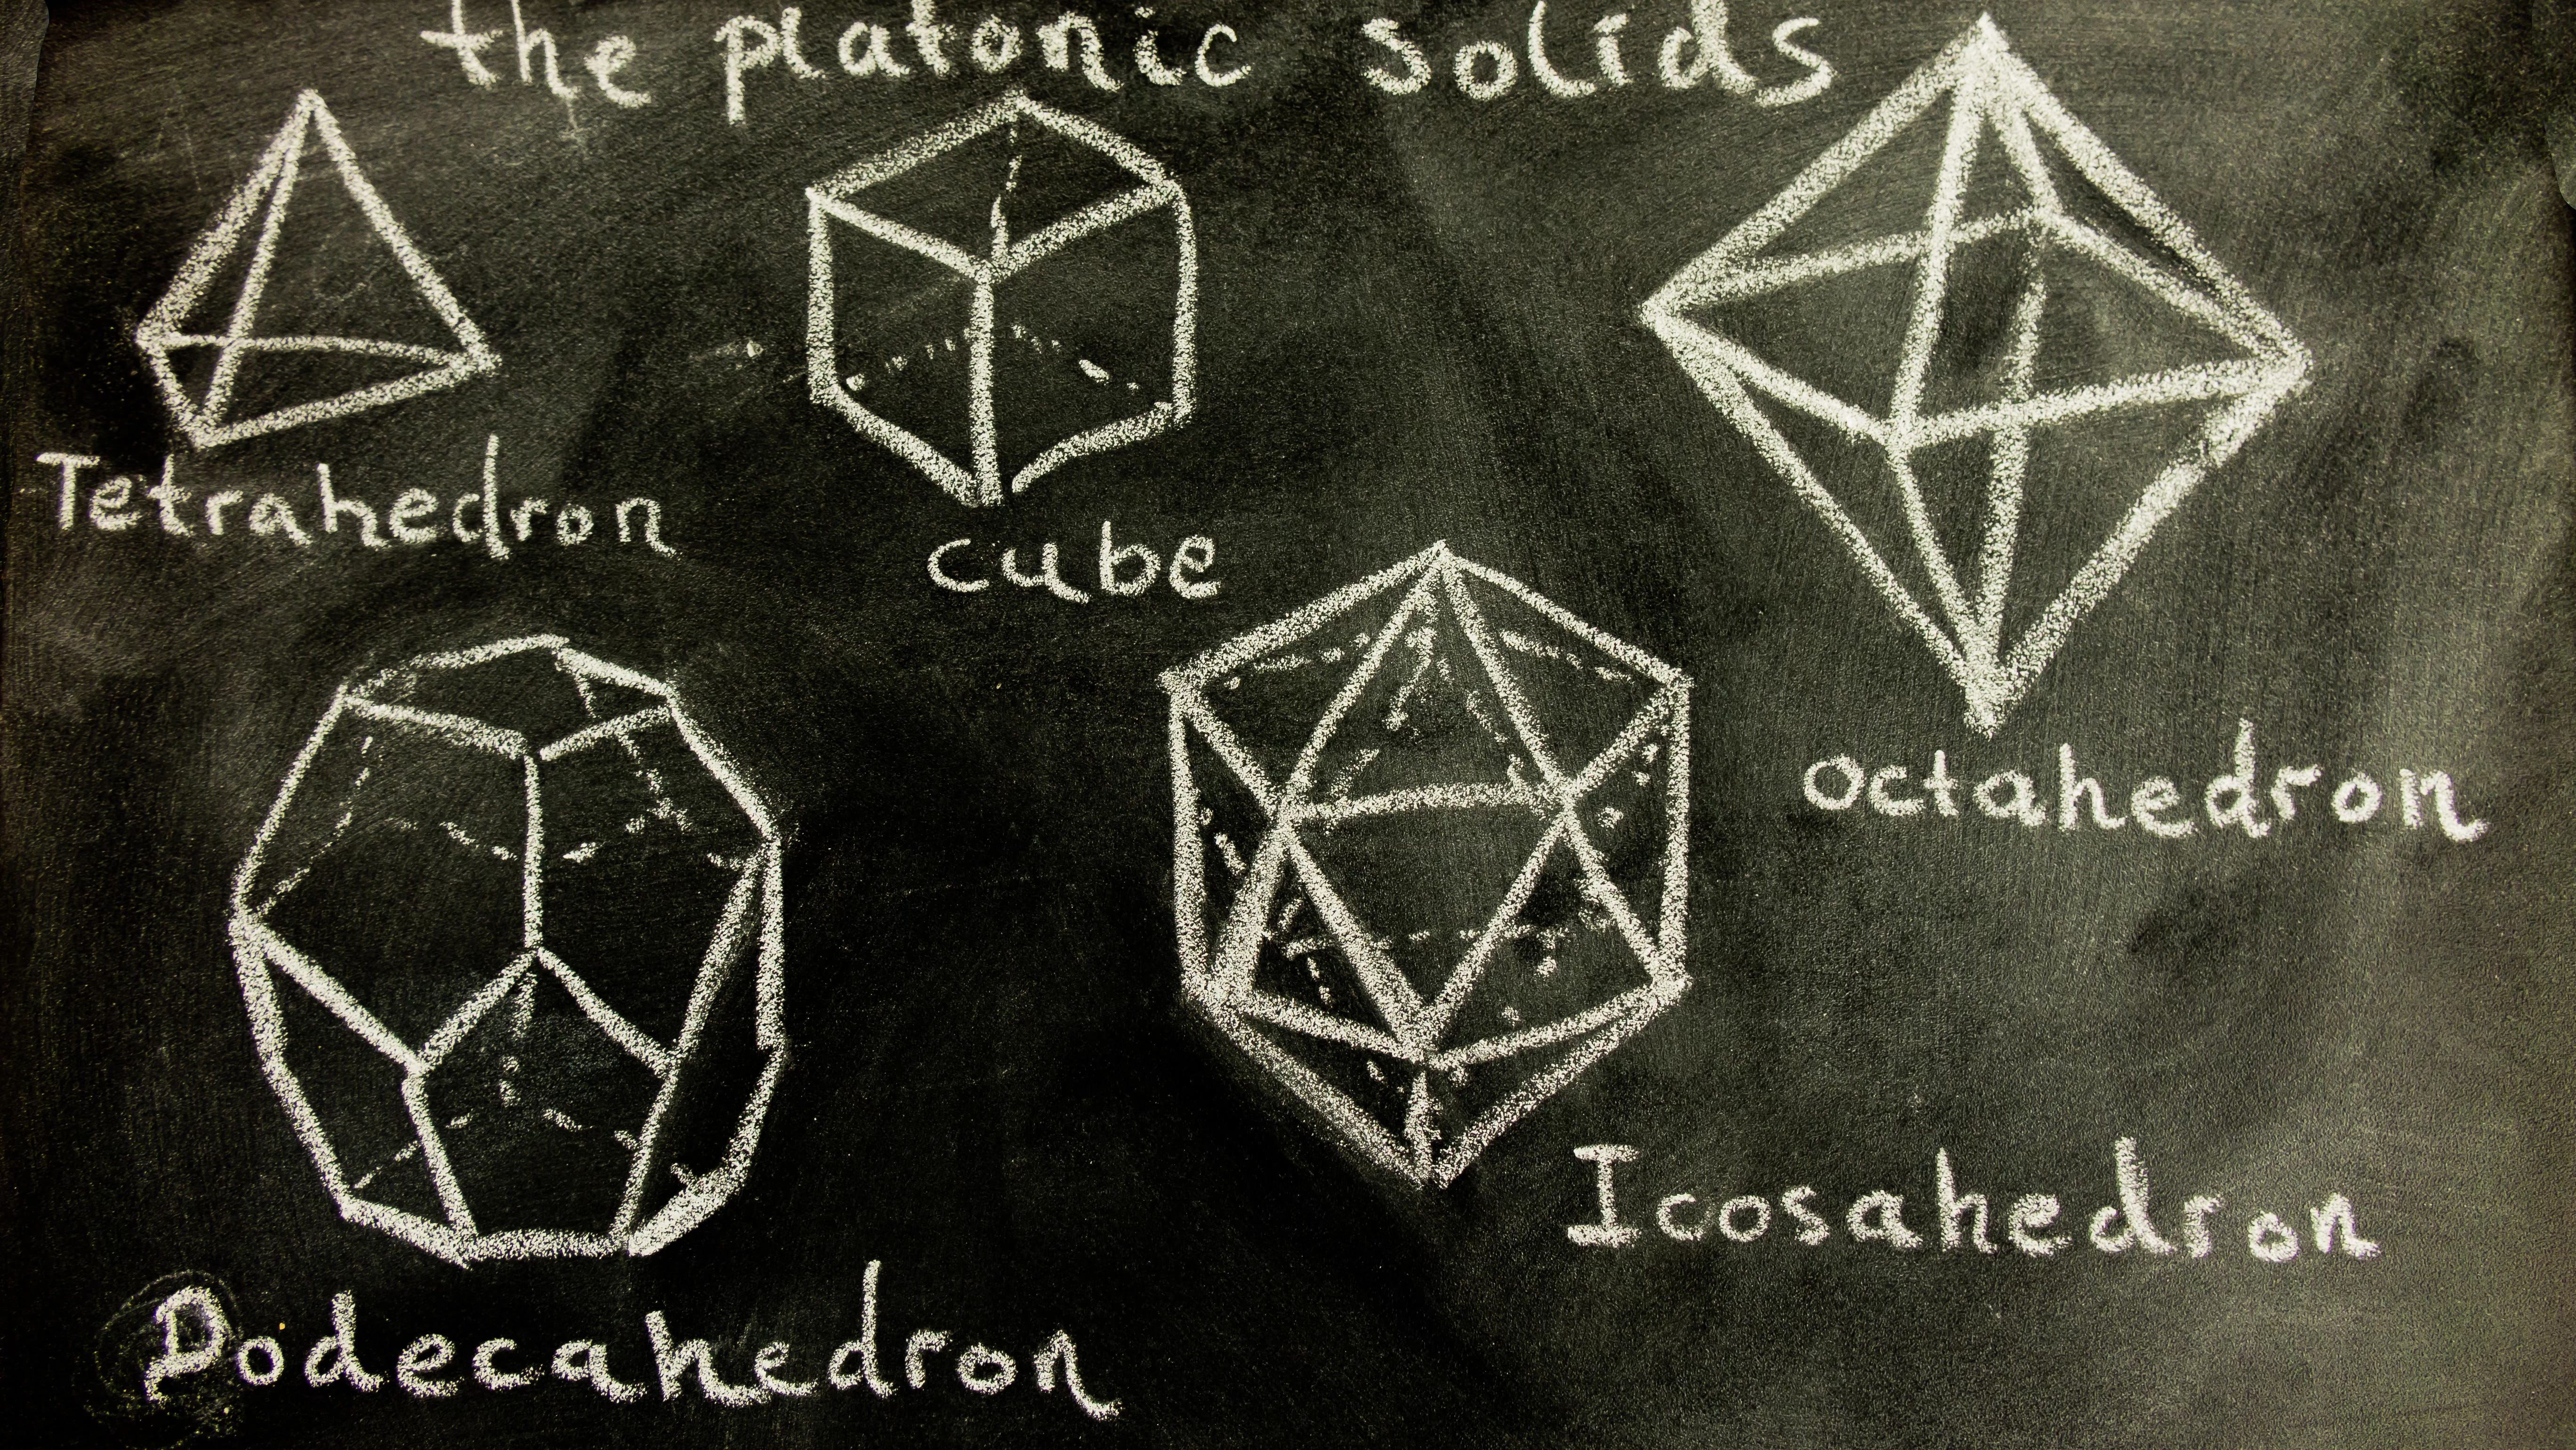 the platonic solids
Tetrahedron
cube
octahedron
Icosahedron
Dodecahedron